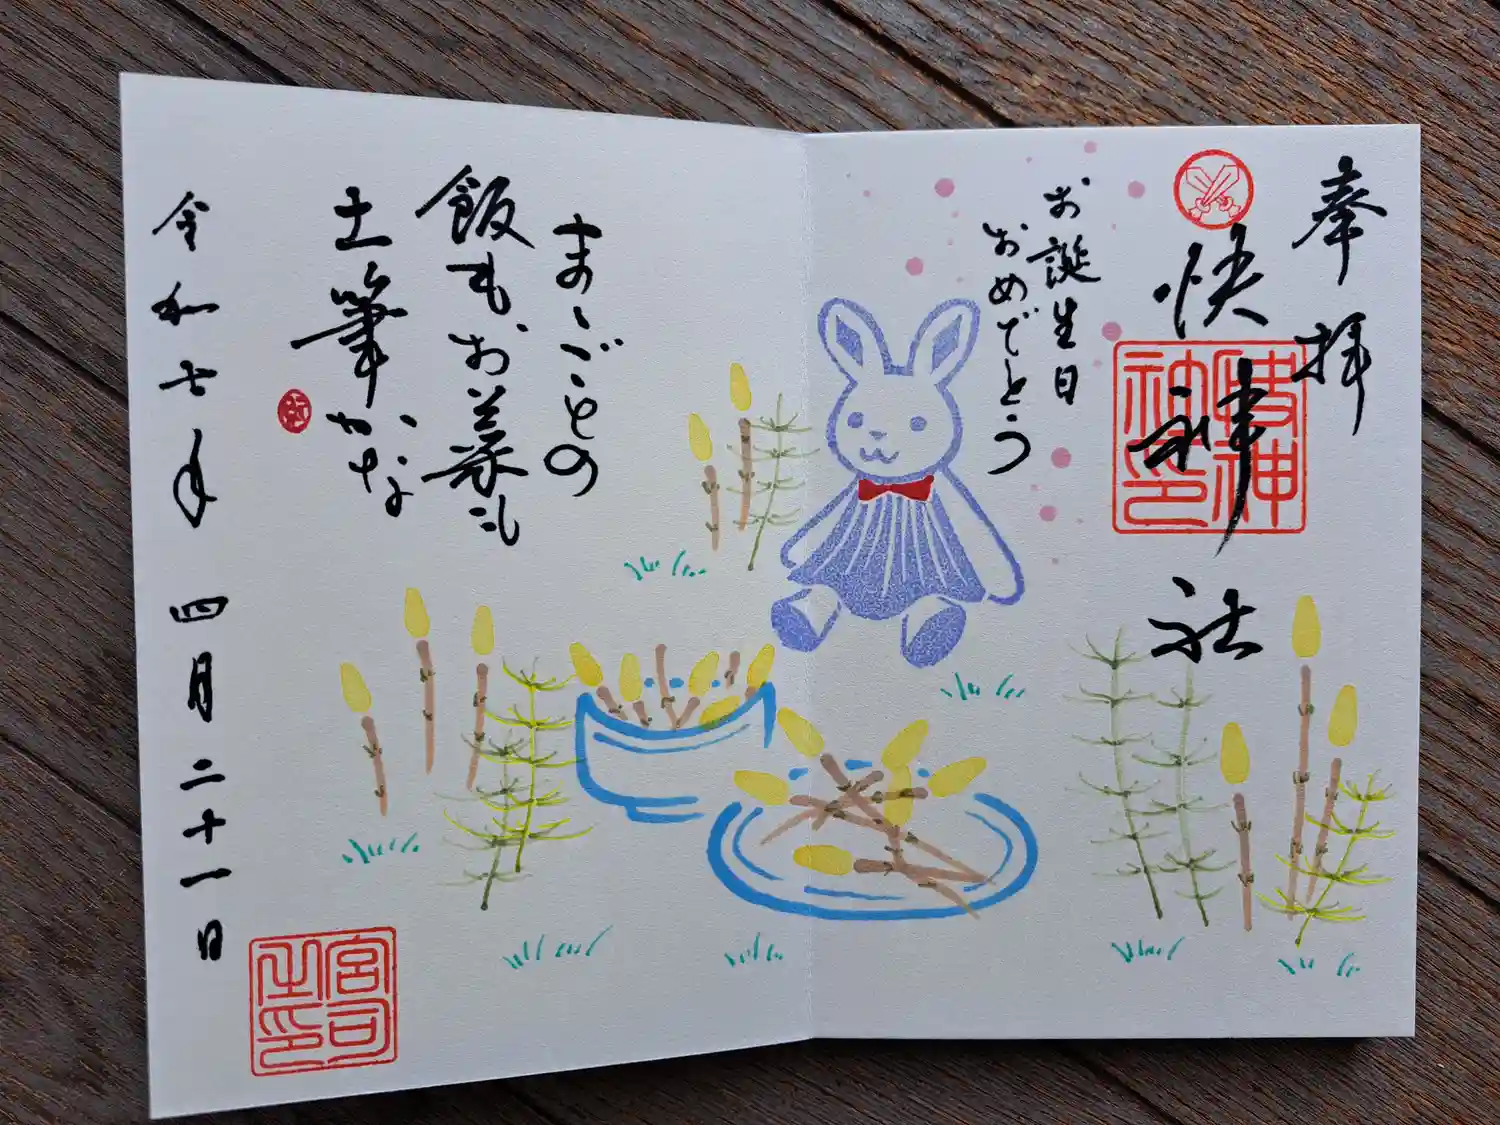 奉拝
快神社
お誕生日
おめでとう
まゝごとの
飯もお菜も
土筆かな
令和七年 四月二十一日
宮司
之印